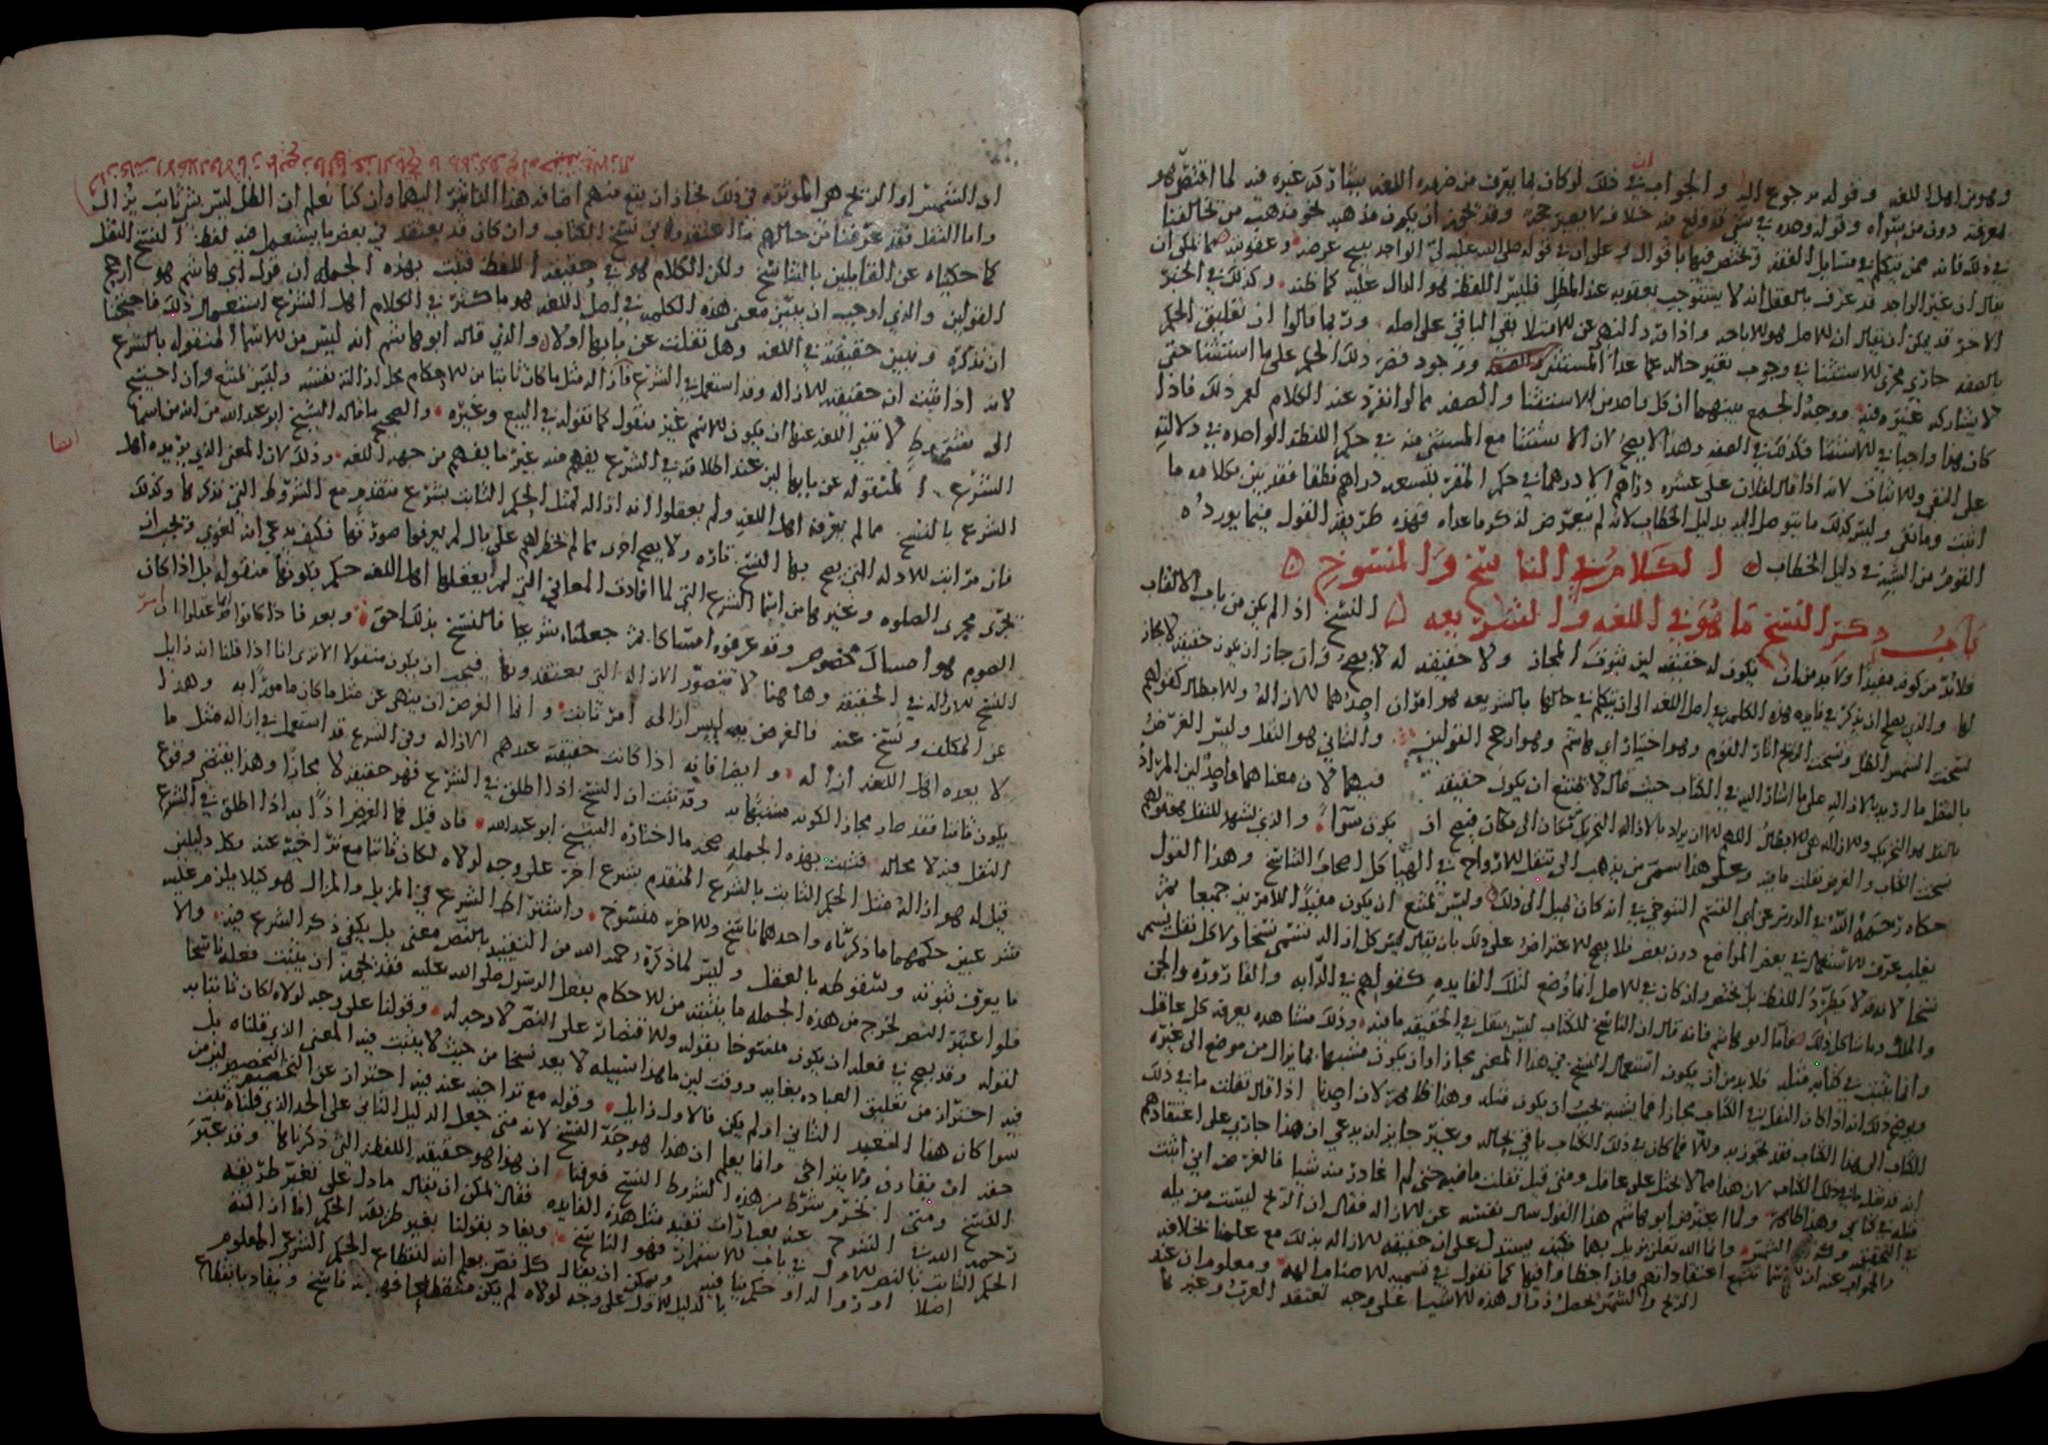 وهو من اهل اللغه وقوله مرجوع اليه والجواب ان ذلك لو كان مما يعرف من ضروره اللغه يشاركه غيره فيه لما اختص هو
بمعرفته دون من سواه وقوله وحده في شي قد وقع فيه خلاف لا يعتبر حجه وقد يجوز ان يكون مذهبه نحو مذهب من يخالفنا
في ذلك فانه ممن يتكلم في مسايل الفقه ويختص فيها باقوال وعلى ان في قوله صلى الله عليه لي الواجد يبيح عرضه وعقوبته مما يمكن ان
يقال ان غير الواجد قد عرف بالعقل انه لا يستوجب عقوبه عند المطل فليس اللفظ هو الدال عليه كما ظنه وكذلك في الخبر
الاخر قد يمكن ان يقال ان الاصل هو الاباحه واذا ورد النهي عن الامتلا بقي الباقي على اصله وربما قالوا ان تعليق الحكم
بالصفه جاري مجرى الاستثنا في وجوب تغير حاله عما عدا المستثنى ووجود قصر ذلك الحكم على ما استثنا حتى
لا يشاركه غيره فيه ووجه الجمع بينهما ان كل واحد من الاستثنا والصفه مما لو انفرد عند الكلام لعم ذلك فاذا
كان هذا واجبا في الاستثنا فكذلك في الصفه وهذا لا يصح لان الاستثنا مع المستثنى منه في حكم اللفظه الواحده في دلالته
على النفي والاثبات لانه اذا قال لفلان علي عشره دراهم الا درهما في حكم المقر بتسعه دراهم فقد بين بكلامه ما
اثبت وما نفى وليس كذلك ما يتوصل اليه بدليل الخطاب لانه لم يتعرض لذكر ما عداه فهذه طريقه القول فيما يورده
القوم من الشبه في دليل الخطاب الكلام في الناسخ والمنسوخ
باب ذكر النسخ ما هو في اللغه والشريعه النسخ اذا لم يكن من باب الالقاب
فلا بد من كونه مفيدا ولا بد من ان يكون له حقيقه لان ثبوت المجاز ولا حقيقه له لا يصح وان جاز ان يكون حقيقه لا مجاز
لها والذي يصح ان يذكر في فايده هذه الكلمه في اصل اللغه الى ان يتكلم في حالها بالشريعه هو امران احدهما الازاله والابطال كقولهم
نسخت الشمس الظل ونسخت الريح اثار القوم وهو اختيار ابي هاشم وهو ارجح القولين والثاني هو النقل وليس الغرض
بالنقل ما اريد بالازاله على ما اشار اليه في الكتاب حيث قال لا يمتنع ان يكون حقيقه فيهما لان معناهما واحد لان المراد
نسخت الكتاب والغرض نقلت ما فيه وعلى هذا سمى من يذهب الى تنقل الارواح في الهياكل اصحاب التناسخ وهذا القول
حكاه رحمه الله في الدرس عن ابي القسم التنوخي في انه كان يميل الى ذلك وليس يمتنع ان يكون مفيدا للامرين جميعا ثم
يغلب عرف الاستعمال في بعض المواضع دون بعض فلا يصح الاعتراض على ذلك بان يقال ليس كل ازاله تسمى نسخا ولا كل نقل يسمى
نسخا لانه قد لا يطرد اللفظ بل يختص وان كان في الاصل انما وضع لتلك الفايده كقولهم في الدابه والقاروره والجن
والملك وما شاكل ذلك فاما ابو هاشم فانه قال ان الناسخ للكتاب ليس ينقل في الحقيقه ما فيه وذلك مشاهده يعرفه كل عاقل
وانما يثبت في كتابه مثله فلا بد من ان يكون استعمال النسخ في هذا المعنى مجازا وان يكون مشبها بما يزال من موضع الى غيره
ويوضح ذلك انه اذا كان النقل في الكتاب مجازا فما يشبه به يجب ان يكون مثله وهذا ظاهر لان احدنا اذا قال نقلت ما في ذلك
الكتاب الى هذا الكتاب فقد تجوز به والا فما كان في ذلك الكتاب باقي بحاله وغير جايز ان يدعى ان هذا جاري على اعتقادهم
انه قد نقل ما في ذلك الكتاب لان هذا مما لا يخيل على عاقل ومتى قيل نقلت ما فيه حتى لم اغادر منه شيا فالغرض اني اثبت
مثله في كتابي وهذا ظاهر ولما اعترض ابو هاشم هذا القول سال نفسه عن الازاله فقال ان الريح ليست مزيله
في التحقيق ولا الشمس وانما الله تعالى يزيل بها فكيف يستدل على ان حقيقه الازاله بذلك مع علمنا بخلافه
والجواب عنه ان الاسما تتبع اعتقاداتهم وان اخطاوا فيها كما نقول في تسميه الاصنام الهه ومعلوم ان عند
الريح والشمس يحصل زوال هذه الاشيا على وجه تعتقد العرب وغيرها
ان الشمس او الريح هو الموثره في ذلك فجاز ان يقع منهم اضافه هذا التاثير اليهما وان كنا نعلم ان الظل ليس بشي ثابت يزال
واما النقل فقد عرفنا من حالهم ما اعتقدوه في نسخ الكتاب وان كان قد يعتقد في بعض ما يستعمل فيه لفظ النسخ النقل
كما حكيناه عن القايلين بالتناسخ ولكن الكلام هو في حقيقه اللفظ فثبت بهذه الجمله ان قول ابي هاشم هو ارجح
القولين والذي اوجب ان يبين معنى هذه الكلمه في اصل اللغه هو ما كثر في الكلام اهل الشرع استعمال ذلك فاحتجنا
ان نذكره ونبين حقيقته في اللغه وهل نقلت عن بابها اولا والذي قاله ابو هاشم انه ليس من الاسما المنقوله بالشرع
لانه اذا ثبت ان حقيقته الازاله وقد استعمل في الشرع في ازاله مثل ما كان ثابتا من الاحكام حل ازاله نفسه وليس يمتنع وان احتيج
الى شروط لا تغير اللغه عنها ان يكون الاسم غير منقول كما نقوله في البيع وغيره والصحيح ما قاله الشيخ ابو عبد الله من انه من اسما
الشرع المنقوله عن بابها لان عند اطلاقه في الشرع يفهم منه غير ما يفهم من جهه اللغه وذلك لان المعنى الذي يريده اهل
الشرع بالنسخ مما لم يعرفه اهل اللغه ولم يعقلوا انه ازاله لمثل الحكم الثابت بشرع متقدم مع الشروط التي نذكرها وكذلك
فان مراتب الادله التي يصح بها النسخ تاره ولا يصح اخرى مما لم يخطر لهم على بال لم يعرفوا صورتها فكيف يدعى انه لغوي ويجب ان
يجري مجرى الصلوه وغيرها من اسما الشرع التي لما افادت المعاني التي لم يعقلها اهل اللغه حكم بكونها منقوله بل اذا كان
الصوم هو امساك مخصوص وقد عرفوه امساكا ثم جعلناه شرعيا فالنسخ بذلك احق وبعد فاذا كانوا انما عقلوا ان
النسخ الازاله في الحقيقه وهاهنا لا تتصور الازاله التي يعتقدونها فيجب ان يكون منقولا الا ترى انا اذا قلنا انه زايل
عن المكلف ونسخ عنه فالغرض به ليس ازاله امر ثابت وانما الغرض ان ينهى عن مثل ما كان مامورا به وهذا
لا يعده اهل اللغه ازاله وايضا فانه اذا كانت حقيقته عندهم الازاله وفي الشرع قد استعمل في ازاله مثل ما
يكون ثابتا فقد صار مجازا لكونه مشبها به وقد ثبت ان النسخ اذا اطلق في الشرع فهو حقيقه لا مجازا وهذا يقتضي وقوع
النقل فيه لا محاله فثبت بهذه الجمله صحه ما اختاره الشيخ ابو عبد الله فان قيل فما الغرض اذا به اذا اطلق في الشرع
قيل له هو ازاله مثل الحكم الثابت بالشرع المتقدم بشرع اخر على وجه لولاه لكان ثابتا مع تراخيه عنه وكل دليلين
شرعيين حكمهما ما ذكرناه واحدهما ناسخ والاخر منسوخ واشتراط الشرع في المزيل والمزال هو كيلا يلزم عليه
ما يعرف ثبوته وسقوطه بالعقل وليس لما ذكره رحمه الله من التقييد بالنص معنى بل يكفي ذكر الشرع فيه والا
فلو اعتبر النص لخرج من هذه الجمله ما يثبت من الاحكام بفعل الرسول صلى الله عليه فقد يجوز ان يثبت فعله ناسخا
لقوله وقد يصح في فعله ان يكون منسوخا بقوله والاقتصار على النص لا وجه له وقولنا على وجه لولاه لكان ثابتا به
فيه احتراز من تعليق العباده بغايه ووقت لان ما هذا سبيله لا يعد نسخا من حيث لا يثبت فيه المعنى الذي قلناه بل
سوا كان هذا التقييد الثاني او لم يكن فالاول زايل وقوله مع تراخيه عنه فيه احتراز عن التخصيص لان من
حقه ان يقارن ولا يتراخى وانما يعلم ان هذا هو حد النسخ لانه متى جعل الدليل الثاني على الحد الذي قلناه ثبت
النسخ ومتى انخرم شرط من هذه الشروط النسخ فعرفنا ان هذا هو حقيقه اللفظه التي ذكرناها وقد عبر
رحمه الله في الشروح عنه بعبارات تفيد مثل هذه الفايده فقال يمكن ان يقال ما دل على تغير طريقه
الحكم الثابت بالنص الاول في باب الاستمرار فهو الناسخ ويفاد بقولنا بغير طريقه الحكم اما ازالته
اصلا او زوال دوام حكمه فيما فيه ويمكن ان يقال كل نص يعلم انه انقطاع الحكم الشرعي المعلوم
بالدليل الاول على وجه لولاه لم يكن منقطعا فهو ناسخ ويفاد بانقطاع
ايضا